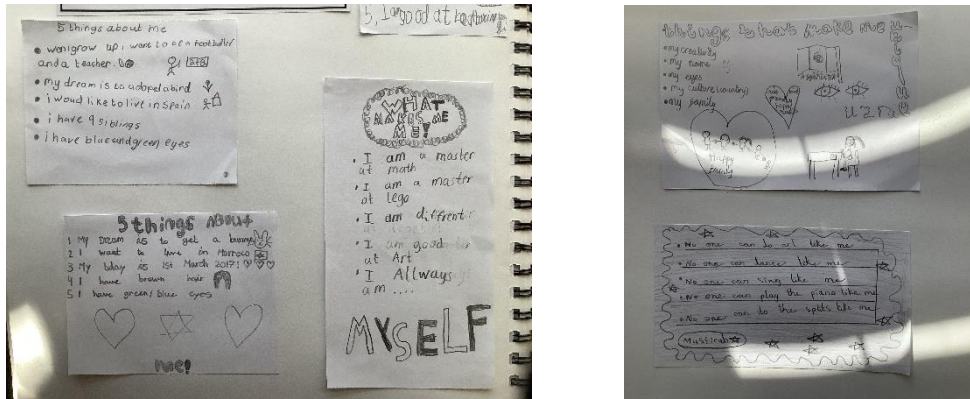 5 things about me
• wen i grow up i want to be a footballer
and a teacher.
• my dream is to adopt a bird
• i woud like to live in Spain
• i have 9 siblings
• i have blue and green eyes
5, I am good at
WHAT
MAKES ME
ME!
• I am a master
at math
• I am a master
at lego
• I am different
• I am good
at Art
• I Allways
am ....
MYSELF
5 things About
1 My Dream is to get a bunny
2 I want to live in Morroco
3 My bday is 1st March 2017!
4 I have brown hair
5 I have green/blue eyes
me!
things that make me
• my creativity
• my name
• my eyes
• my culture (country)
• my family
Happy
family
• No one can do art like me
• No one can dance like me
• No one can sing like me
• No one can play the piano like me
• No one can do the splits like me